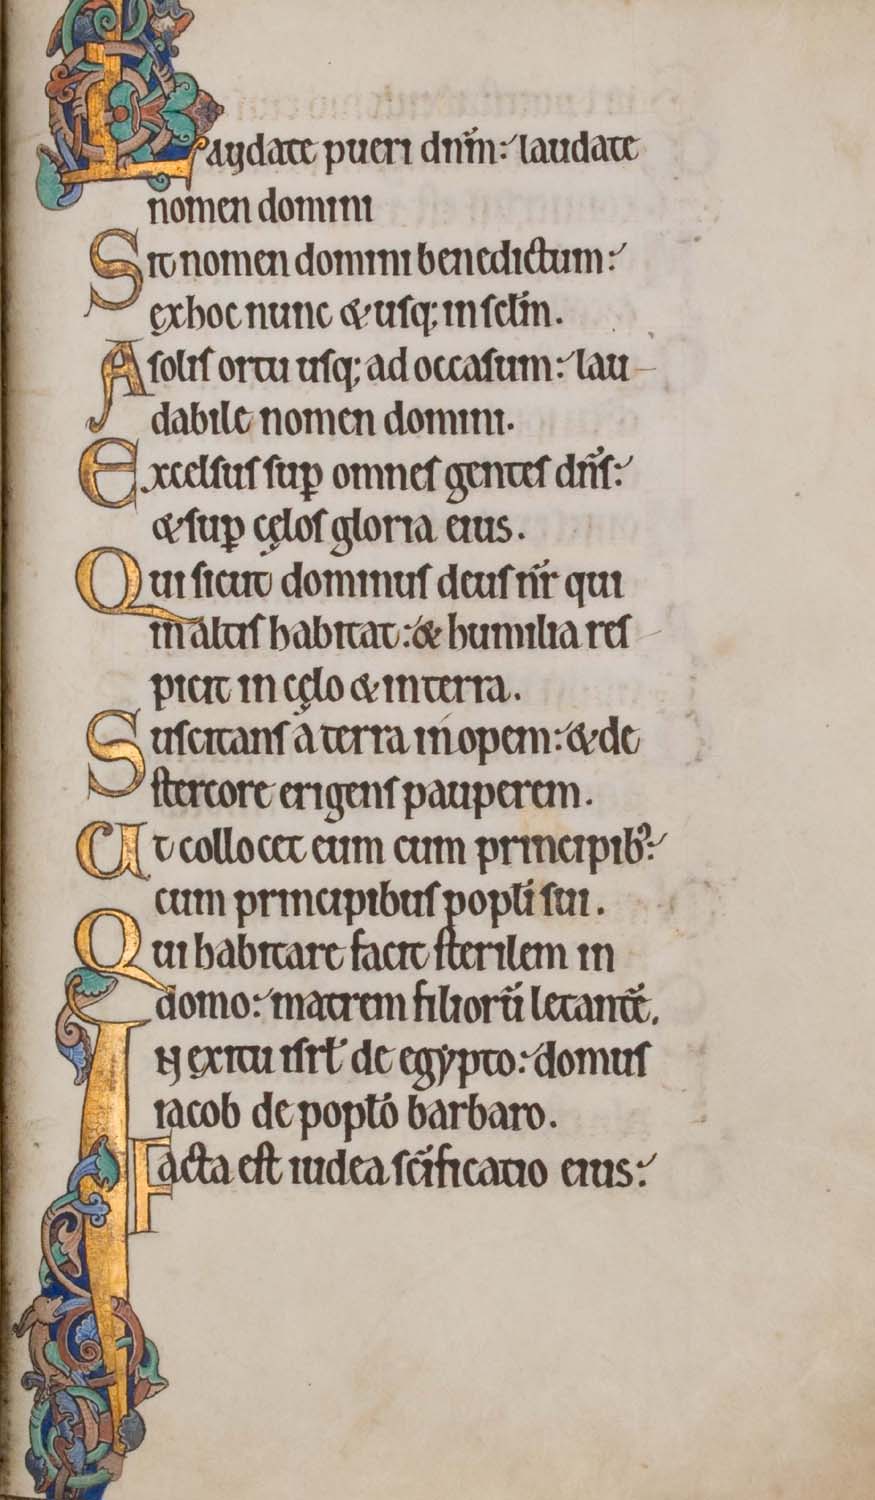 Laudate pueri dn̄m: laudate
nomen domini
Sit nomen domini benedictum:
ex hoc nunc & usq; in sclm̄.
A solis ortu usq; ad occasum: lau
dabile nomen domini.
Excelsus sup̄ omnes gentes dn̄s:
& sup̄ cęlos gloria eius.
Qui sicut dominus deus nr̄ qui
in altis habitat: & humilia res
picit in cęlo & in terra.
Suscitans a terra inopem: & de
stercore erigens pauperem.
Ut collocet eum cum principib;:
cum principibus popłi sui.
Qui habitare facit sterilem in
domo: matrem filiorū letantē.
In exitu isrł de egypto: domus
iacob de popło barbaro.
Facta est iudea scīficatio eius: